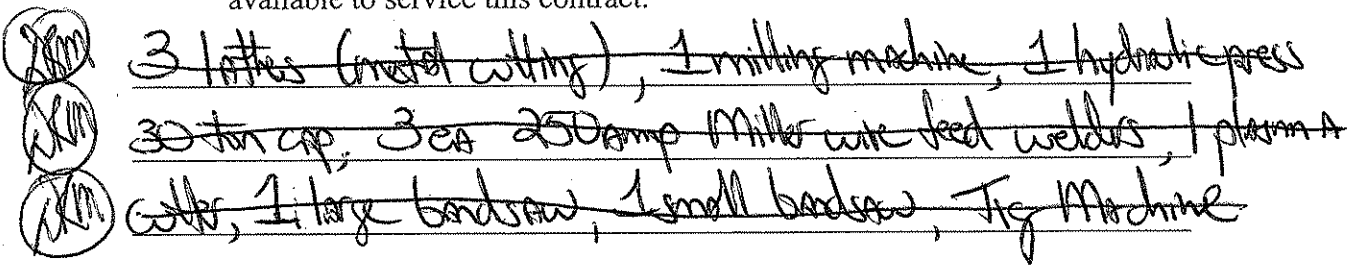 available to service this contract.
3 lathes (metal cutting), 1 milling machine, 1 hydralic press
30 ton cap, 3 eA 250 Amp Miller wire feed welders, 1 plasma A
cutter, 1 large bandsaw, 1 small bandsaw, Tig Machine